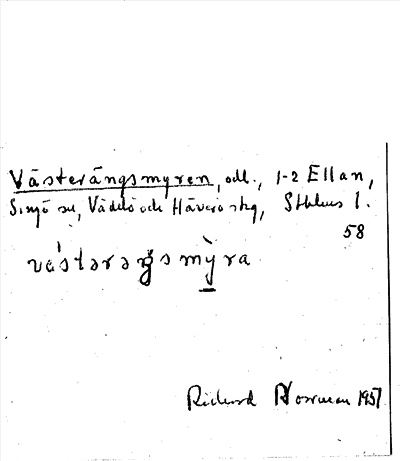 Västerängsmyren, odl., 1-2 Ellan,
Singö sn, Väddö och Häverö skg, Sthlms l.
58
västərəŋsmỳra
Rickard Norman 1957